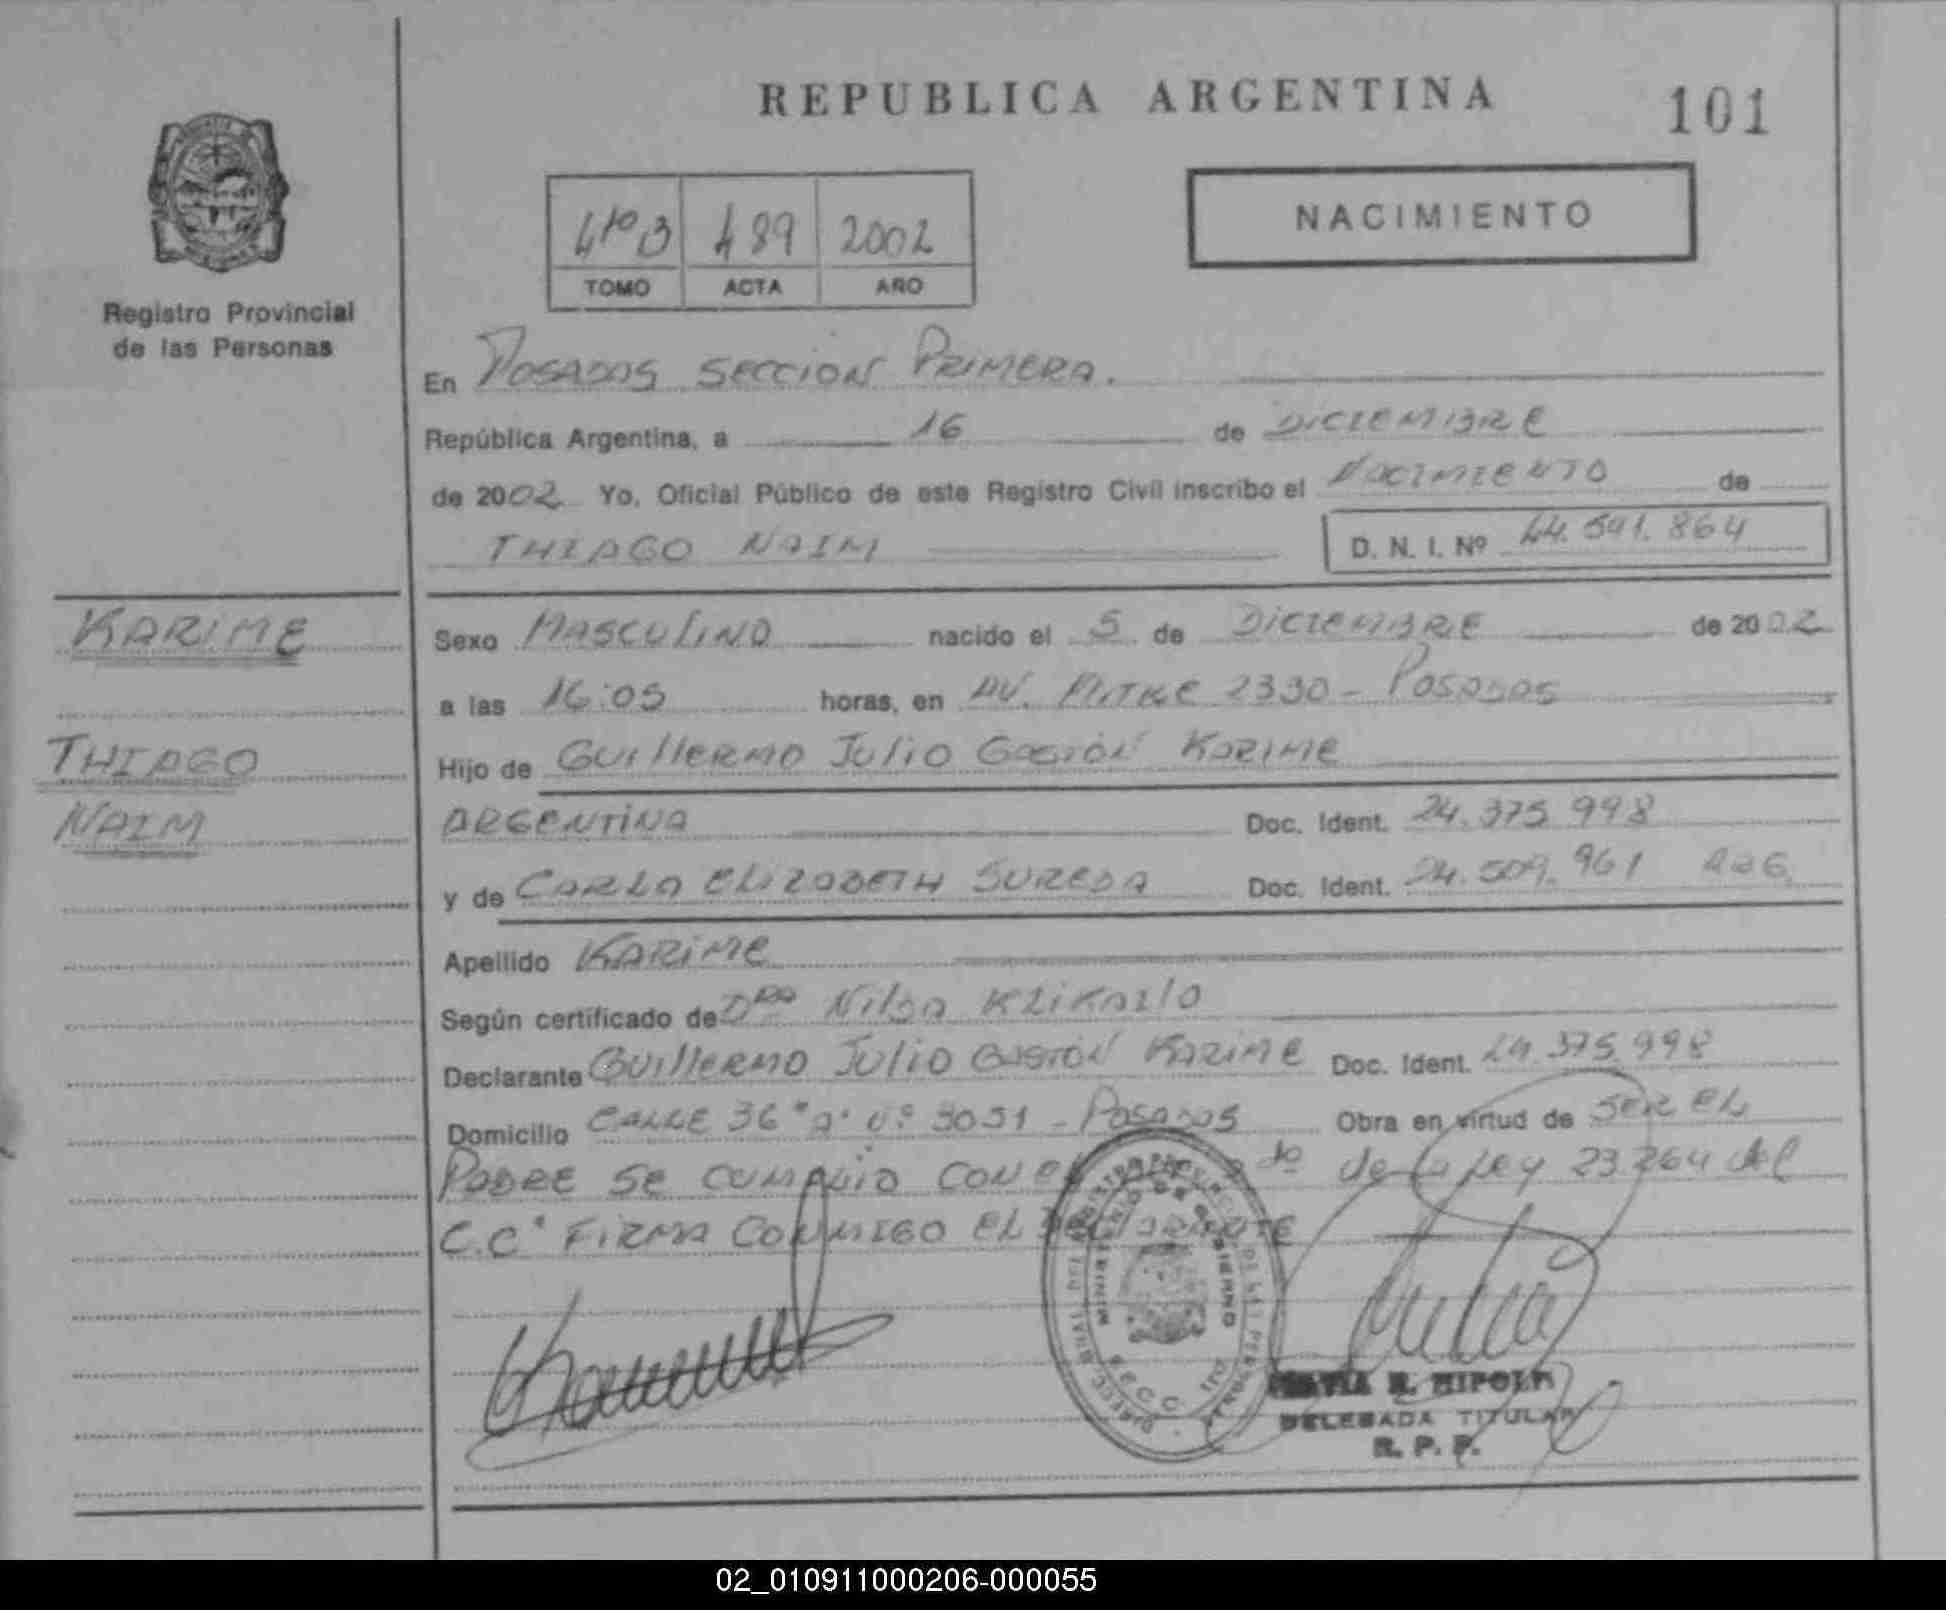 REPUBLICA ARGENTINA
101
4to B 489 2002
TOMO ACTA AÑO
NACIMIENTO
Registro Provincial
de las Personas
En POSADAS SECCION PRIMERA.
República Argentina, a 16 de DICIEMBRE
de 2002 Yo, Oficial Público de este Registro Civil inscribo el NACIMIENTO de
THIAGO NAIM D. N. I. Nº 44.541.864
KARIME
THIAGO
NAIM
Sexo MASCULINO nacido el 5 de DICIEMBRE de 2002
a las 16:05 horas, en AV. MITRE 2330 - POSADAS
Hijo de GUILLERMO JULIO GASTÓN KARIME
ARGENTINA Doc. Ident. 24.375.998
y de CARLA ELIZABETH SUREDA Doc. Ident. 24.509.961 ARG.
Apellido KARIME
Según certificado de Dra Nilda
Declarante GUILLERMO JULIO GASTÓN KARIME Doc. Ident. 24.375.998
Domicilio CALLE 36 "A" Nº 3051 - POSADAS Obra en virtud de SER EL
PADRE SE CUMPLIO CON de la Ley 23.264 del
C.C. FIRMA CONMIGO EL DECLARANTE
R. HIPOLI
DELEGADA TITULAR
R. P. P.
02_010911000206-000055